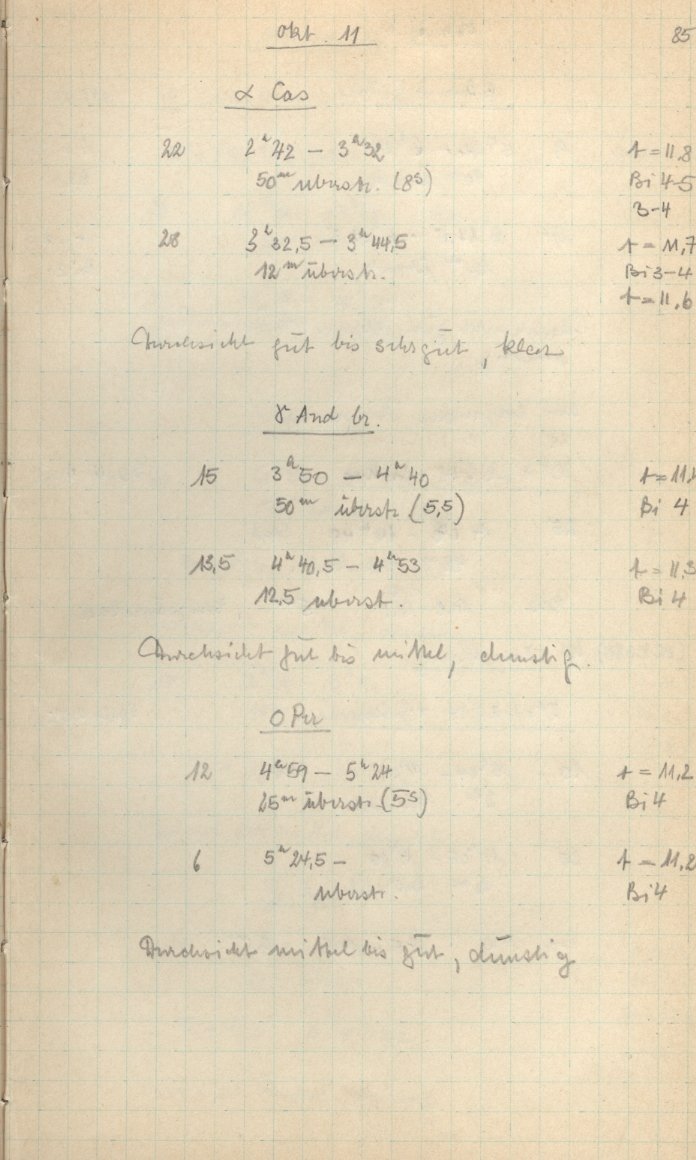 Okt. 11 85
α Cas
22 2ʰ42 – 3ʰ32 t = 11,8
50ᵐ überstr. (8ˢ) Bi 4-5
3-4
28 3ʰ32,5 – 3ʰ44,5 t = 11,7
12ᵐ überstr. Bi 3-4
t = 11,6
Durchsicht gut bis sehr gut, klar
γ And br.
15 3ʰ50 – 4ʰ40 t = 11,
50ᵐ überstr. (5,5) Bi 4
13,5 4ʰ40,5 – 4ʰ53 t = 11,3
12,5 überst. Bi 4
Durchsicht gut bis mittel, dunstig.
o Per
12 4ʰ59 – 5ʰ24 t = 11,2
25ᵐ überstr. (5ˢ) Bi 4
6 5ʰ24,5 – t = 11,2
überstr. Bi 4
Durchsicht mittel bis gut, dunstig